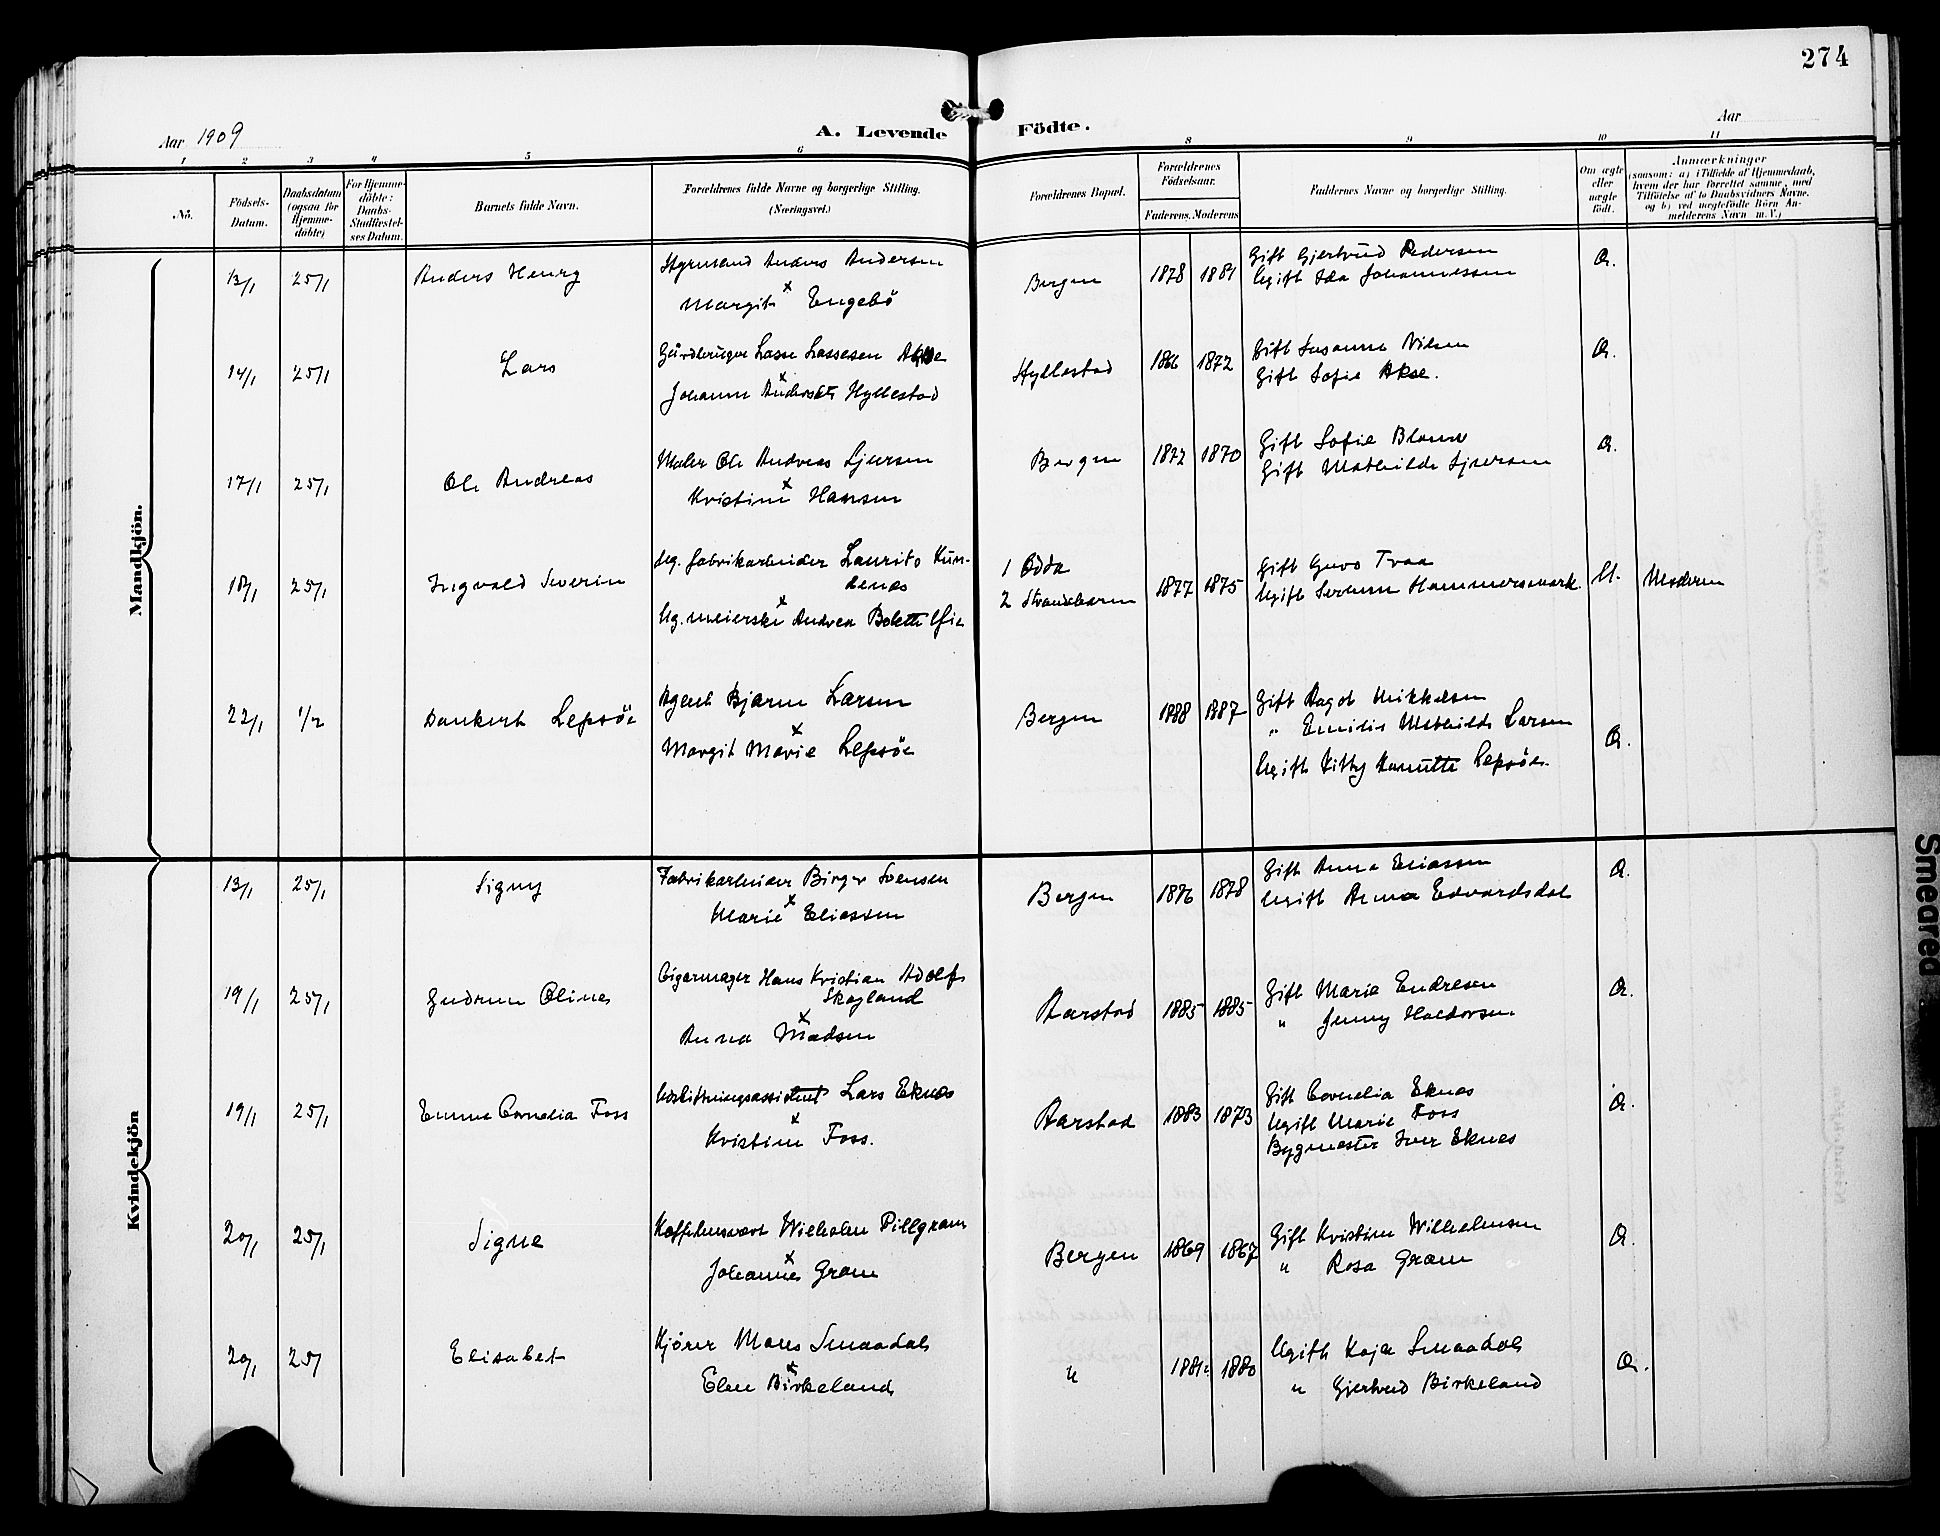 274
Aar 1909
A. Levende Födte.
Aar
1 2 3 4 5 6 8 9 10 11
Nô.
Födsels-Datum.
Daabsdatum (ogsaa for Hjemme-döbte)
For Hjemme-döbte: Daabs-Stadfæstel-ses Datum.
Barnets fulde Navn.
Forældrenes fulde Navne og borgerlige Stilling. (Næringsvei.)
Forældrenes Bopæl.
Forældrenes Födselsaar.
Faderens. Moderens
Faddernes Navne og borgerlige Stilling.
Om ægte eller uægte födt.
Anmærkninger
(saasom: a) i Tilfælde af Hjemmedaab, hvem der har forrettet samme, med Tilföielse af to Daabsvidners Navne, og b) ved uægtefödte Börn An-melderens Navn m. V.)
Mandkjön.
13/1 25/1 Anders Henry Styrmand Anders Andersen Bergen 1878 1881 Gift Gjertrud Pedersen Æ.
Margit Engebö Ugift Ida Johannessen
14/1 25/1 Lars Gårdbruger Lasse Lassesen Hyllestad 1866 1872 Gift Susanne Nilsen Æ.
Johanne Hyllestad Gift Sofie Akse.
17/1 25/1 Ole Andreas Maler Ole Andreas Sjursen Bergen 1872 1870 Gift Sofie Æ.
Kristine Hansen Gift Mathilde Sjursen
18/1 25/1 Ingvald Severin Ug. fabrikarbeider Laurits 1 Odda 1877 1875 Gift Guro Tvaa U. Moderen
2 Strandebarm Ugift Hammersmark
Ug. meierske Andrea Bolette
22/1 1/2 Dankert Lepsöe Agent Bjarne Larsen Bergen 1888 1887 Gift Dagot Mikkelsen Æ.
" Emilie Mathilde Larsen
Margit Marie Lepsöe Ugift Kitty Lepsöe.
Kvindekjön
13/1 25/1 Signy Fabrikarbeider Birger Svensen Bergen 1876 1878 Gift Anna Eliassen Æ.
Marie Eliassen Ugift Anna Edvardsdal
19/1 25/1 Gudrun Oline Cigarmager Hans Kristian Adolf Aarstad 1885 1885 Gift Marie Endresen Æ.
Skogland " Jenny Haldorsen
Anna Madsen
19/1 25/1 Emma Cornelia Foss Lars Eknes Aarstad 1883 1873 Gift Cornelia Eknes Æ.
Kristine Foss. Ugift Marie Foss
Bygmester Iver Eknes
20/1 25/1 Signe Wilhelm Pillgram Bergen 1869 1867 Gift Kristine Wilhelmsen Æ.
Johanne Gram " Rosa Gram
20/1 25/ Elisabet Kjörer Mons Smaadal " 1881 1880 Ugift Kaja Smaadal Æ.
Elen Birkeland " Gjertrud Birkeland
Smeared